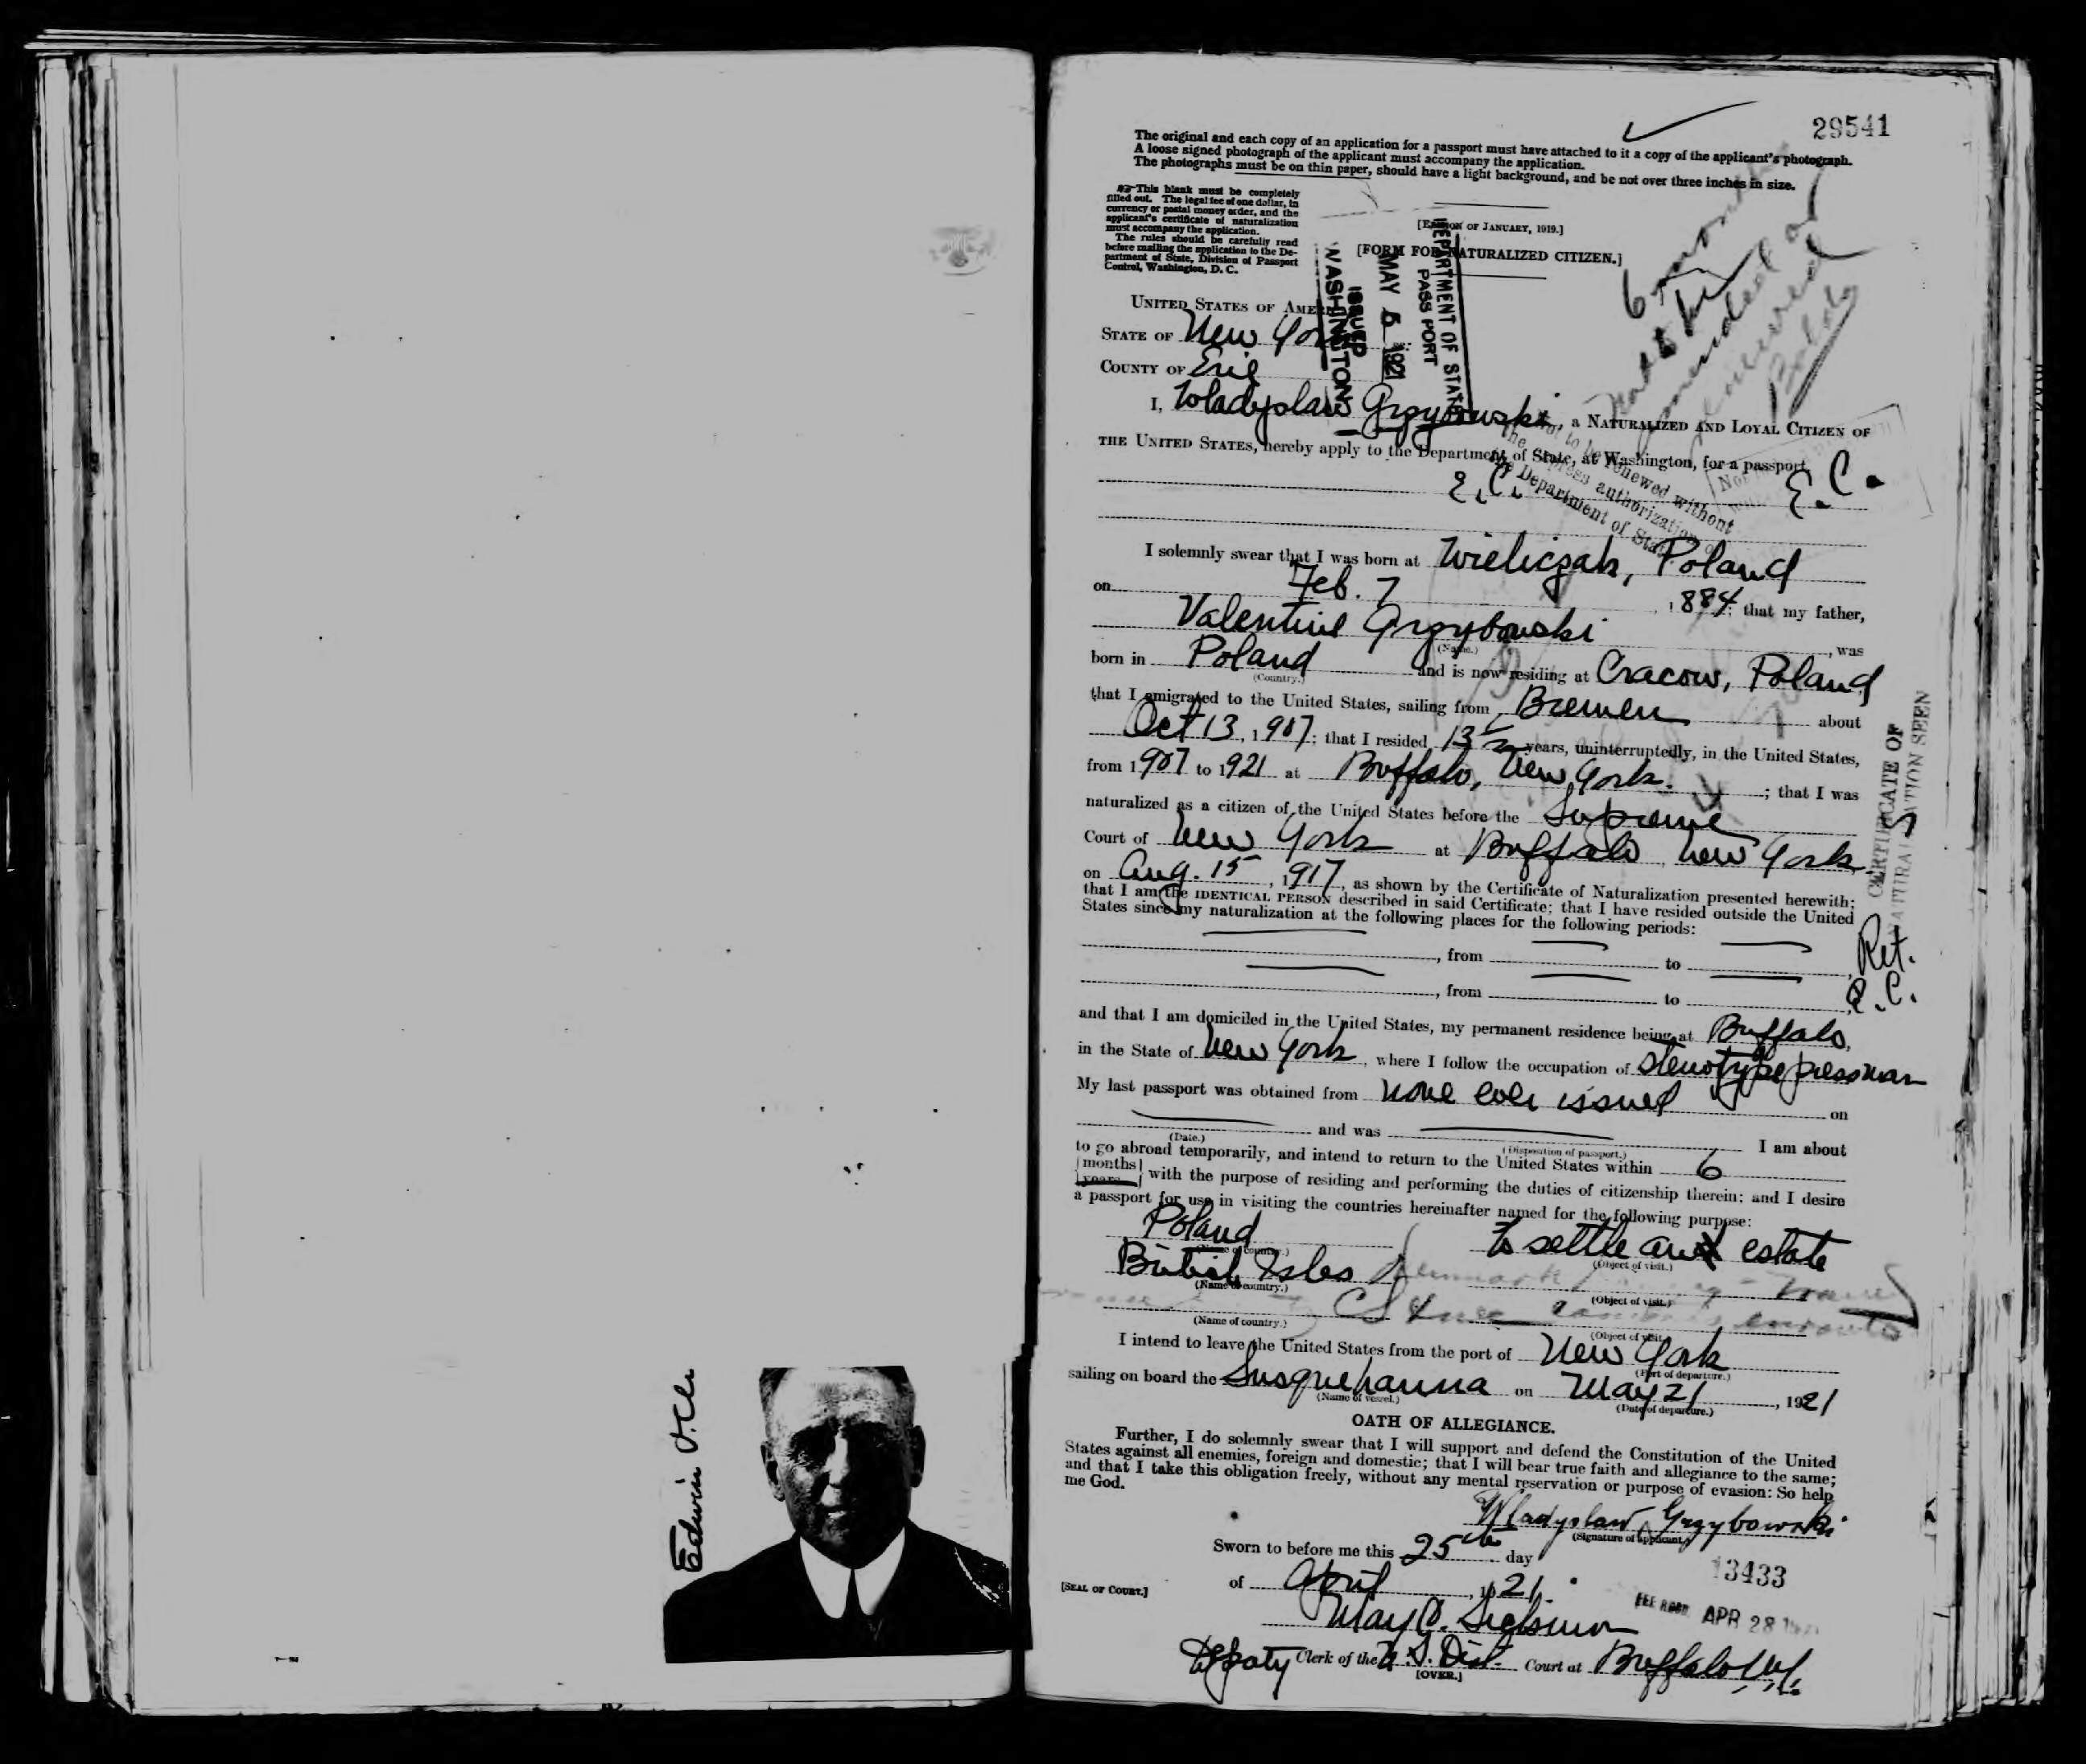 Edwin
29541
The original and each copy of an application for a passport must have attached to it a copy of the applicant's photograph.
A loose signed photograph of the applicant must accompany the application.
The photographs must be on thin paper, should have a light background, and be not over three inches in size.
This blank must be completely
filled out. The legal fee of one dollar, in
currency or postal money order, and the
applicant's certificate of naturalization
must accompany the application.
The rules should be carefully read
before mailing the application to the De-
partment of State, Division of Passport
Control, Washington, D. C.
[EDITION OF JANUARY, 1919.]
[FORM FOR NATURALIZED CITIZEN.]
DEPARTMENT OF STATE
PASSPORT
MAY 5 1921
ISSUED
WASHINGTON
6 months
UNITED STATES OF AMERICA
STATE OF New York
COUNTY OF Erie
I, Wladyslaw Grzybowski, a NATURALIZED AND LOYAL CITIZEN OF
THE UNITED STATES, hereby apply to the Department of State, at Washington, for a passport
Not to be renewed without
the express authorization of
the Department of State
E.C. E.C.
I solemnly swear that I was born at Wieliczah, Poland
on Feb. 7, 1884; that my father,
Valentine Grzybowski, was
(Name.)
born in Poland and is now residing at Cracow, Poland
(Country.)
that I emigrated to the United States, sailing from Bremen about
Oct 13, 1907; that I resided 13 1/2 years, uninterruptedly, in the United States,
from 1907 to 1921 at Buffalo, New York.; that I was
naturalized as a citizen of the United States before the Supreme
Court of New York at Buffalo, New York
on Aug. 15, 1917, as shown by the Certificate of Naturalization presented herewith;
that I am the IDENTICAL PERSON described in said Certificate; that I have resided outside the United
States since my naturalization at the following places for the following periods:
CERTIFICATE OF
NATURALIZATION SEEN
, from to
Ret.
, from to
E.C.
and that I am domiciled in the United States, my permanent residence being at Buffalo,
in the State of New York, where I follow the occupation of Stenotype pressman
My last passport was obtained from none ever issued on
and was I am about
(Date.) (Disposition of passport.)
to go abroad temporarily, and intend to return to the United States within 6
months
years with the purpose of residing and performing the duties of citizenship therein; and I desire
a passport for use in visiting the countries hereinafter named for the following purpose:
Poland to settle an estate
(Name of country.) (Object of visit.)
British Isles Denmark
(Name of country.) (Object of visit.)
(Name of country.) (Object of visit.)
I intend to leave the United States from the port of New York
(Port of departure.)
sailing on board the Susquehanna on May 21, 1921
(Name of vessel.) (Date of departure.)
OATH OF ALLEGIANCE.
Further, I do solemnly swear that I will support and defend the Constitution of the United
States against all enemies, foreign and domestic; that I will bear true faith and allegiance to the same;
and that I take this obligation freely, without any mental reservation or purpose of evasion: So help
me God.
Wladyslaw Grzybowski
(Signature of applicant.)
Sworn to before me this 25th day
13433
[SEAL OF COURT.] of April, 1921.
FEE RECD. APR 28 192
May C.
Deputy Clerk of the U.S. Dist. Court at Buffalo, N.Y.
[OVER.]